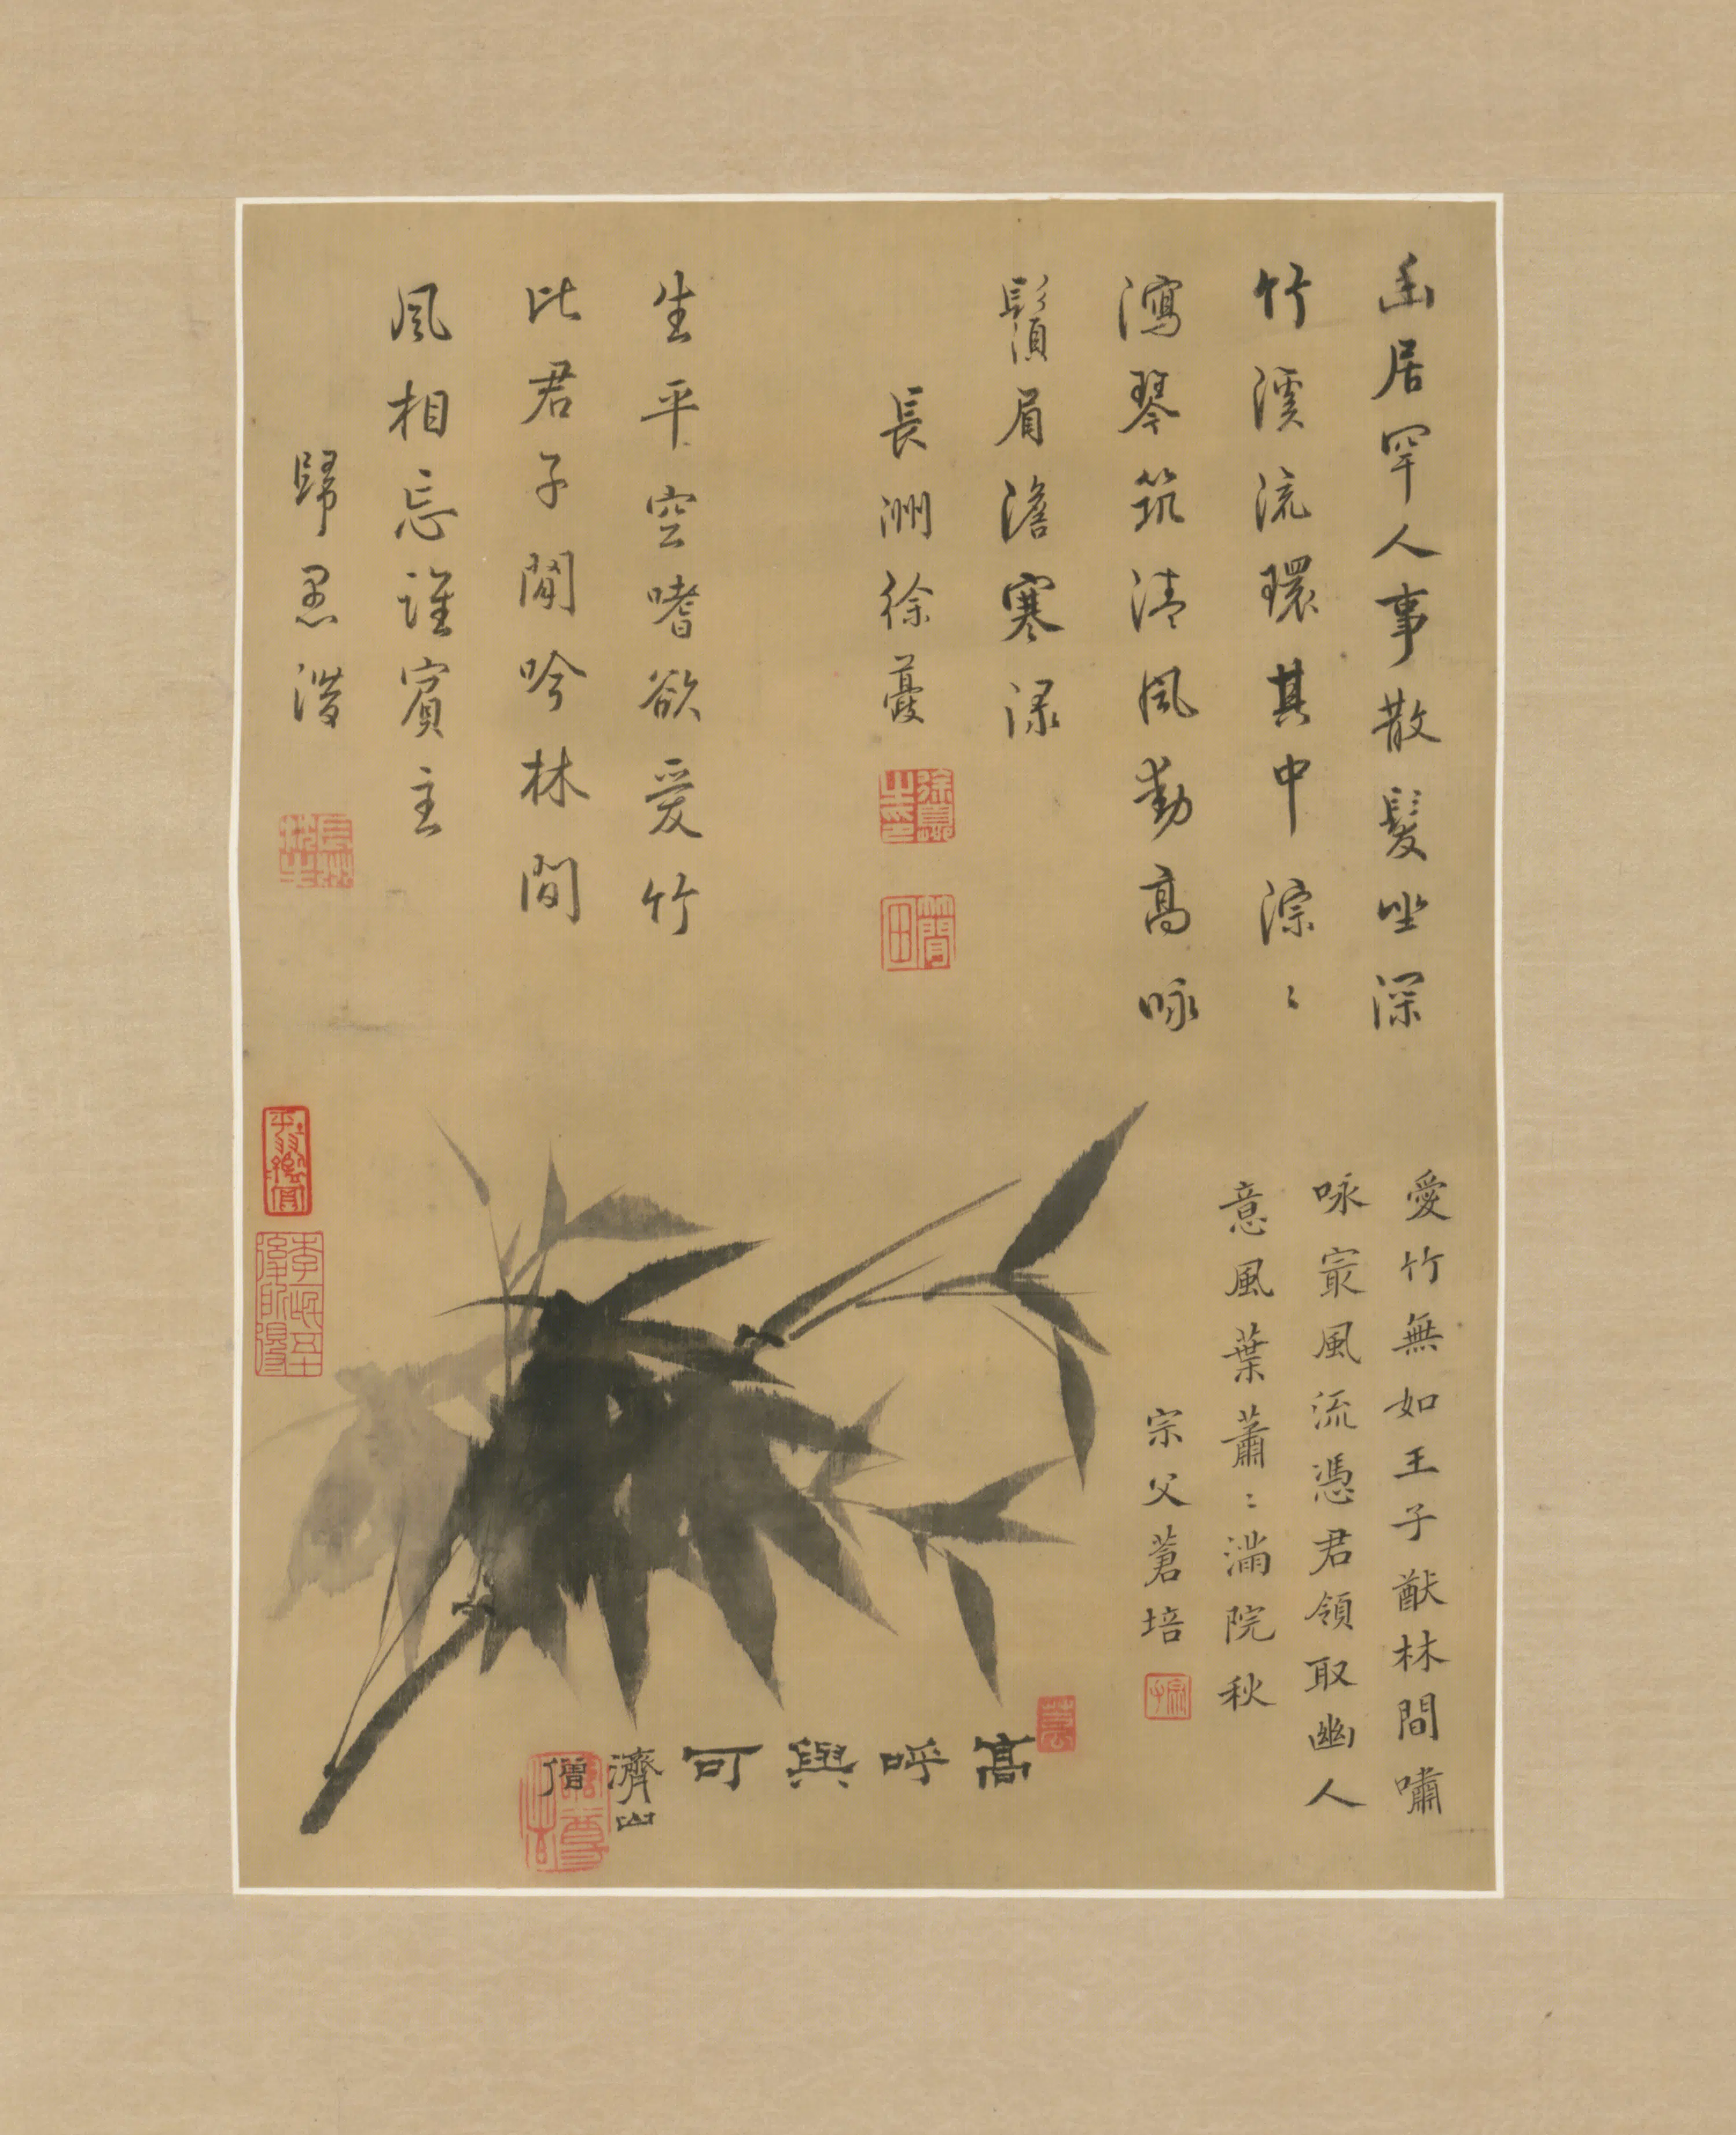 幽居罕人事散髮坐深
竹溪流環其中淙〻
瀉琴筑清風動高咏
鬚眉澹寒渌
長洲徐䕫
生平空嗜欲愛竹
比君子閒吟林間
風相忘誰賓主
歸愚潛
愛竹無如王子猷林間嘯
咏㝡風流憑君領取幽人
意風葉蕭〻滿院秋
宗父蒼培
高呼與可
濟山僧
竹閒